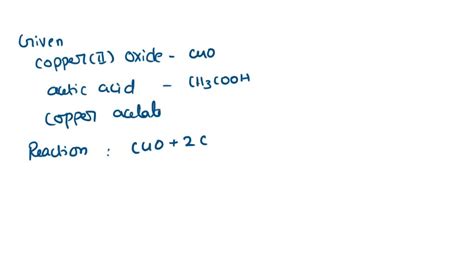 Given
copper(II) oxide - CuO
acetic acid - CH3COOH
copper acetate
Reaction : CuO + 2 C